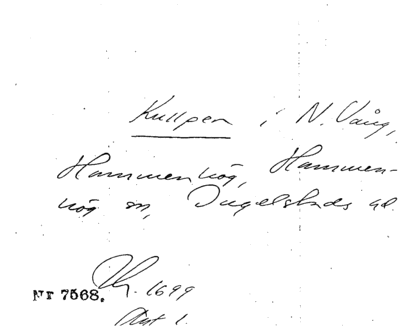 Kullpen i N. Vång,
Hammenhög, Hammen-
hög sn, Ingelstads hd.
Nr 7568.
1699
Akt 1.